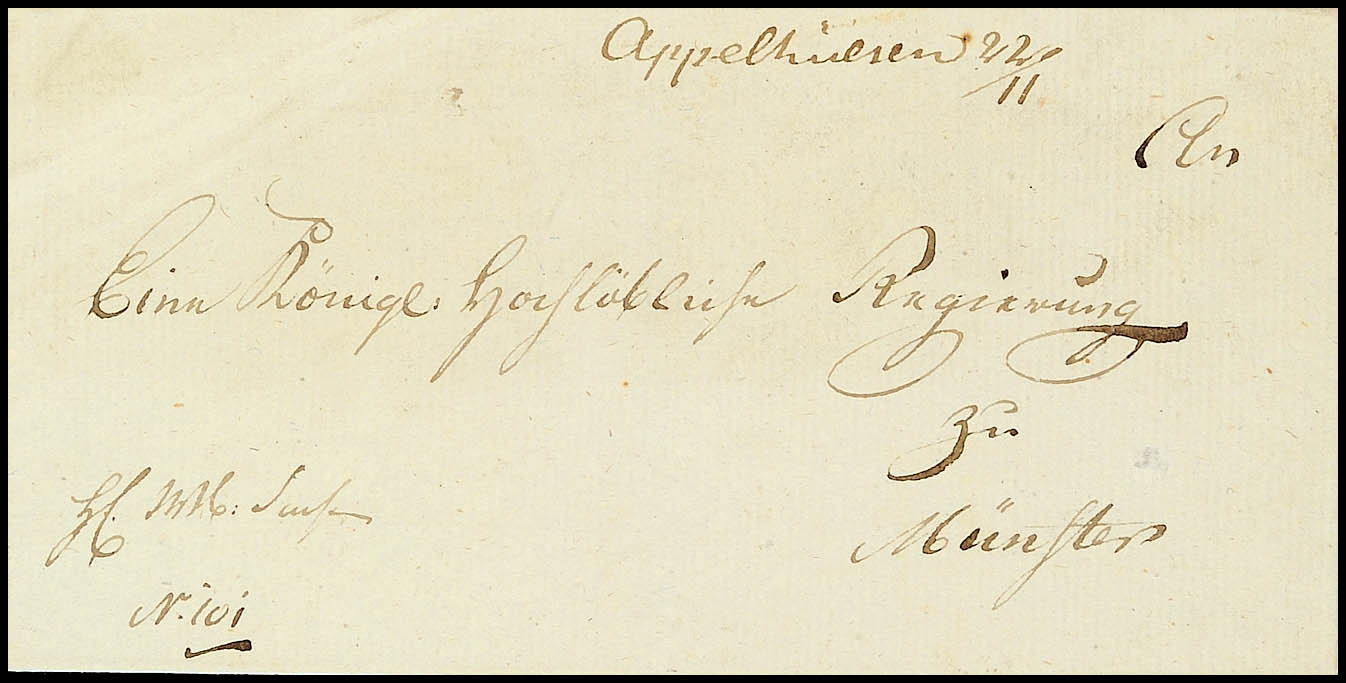 Appelhülsen 22/11
An
Eine Königl: Hochlöbliche Regierung
zu
Münster
N. 101